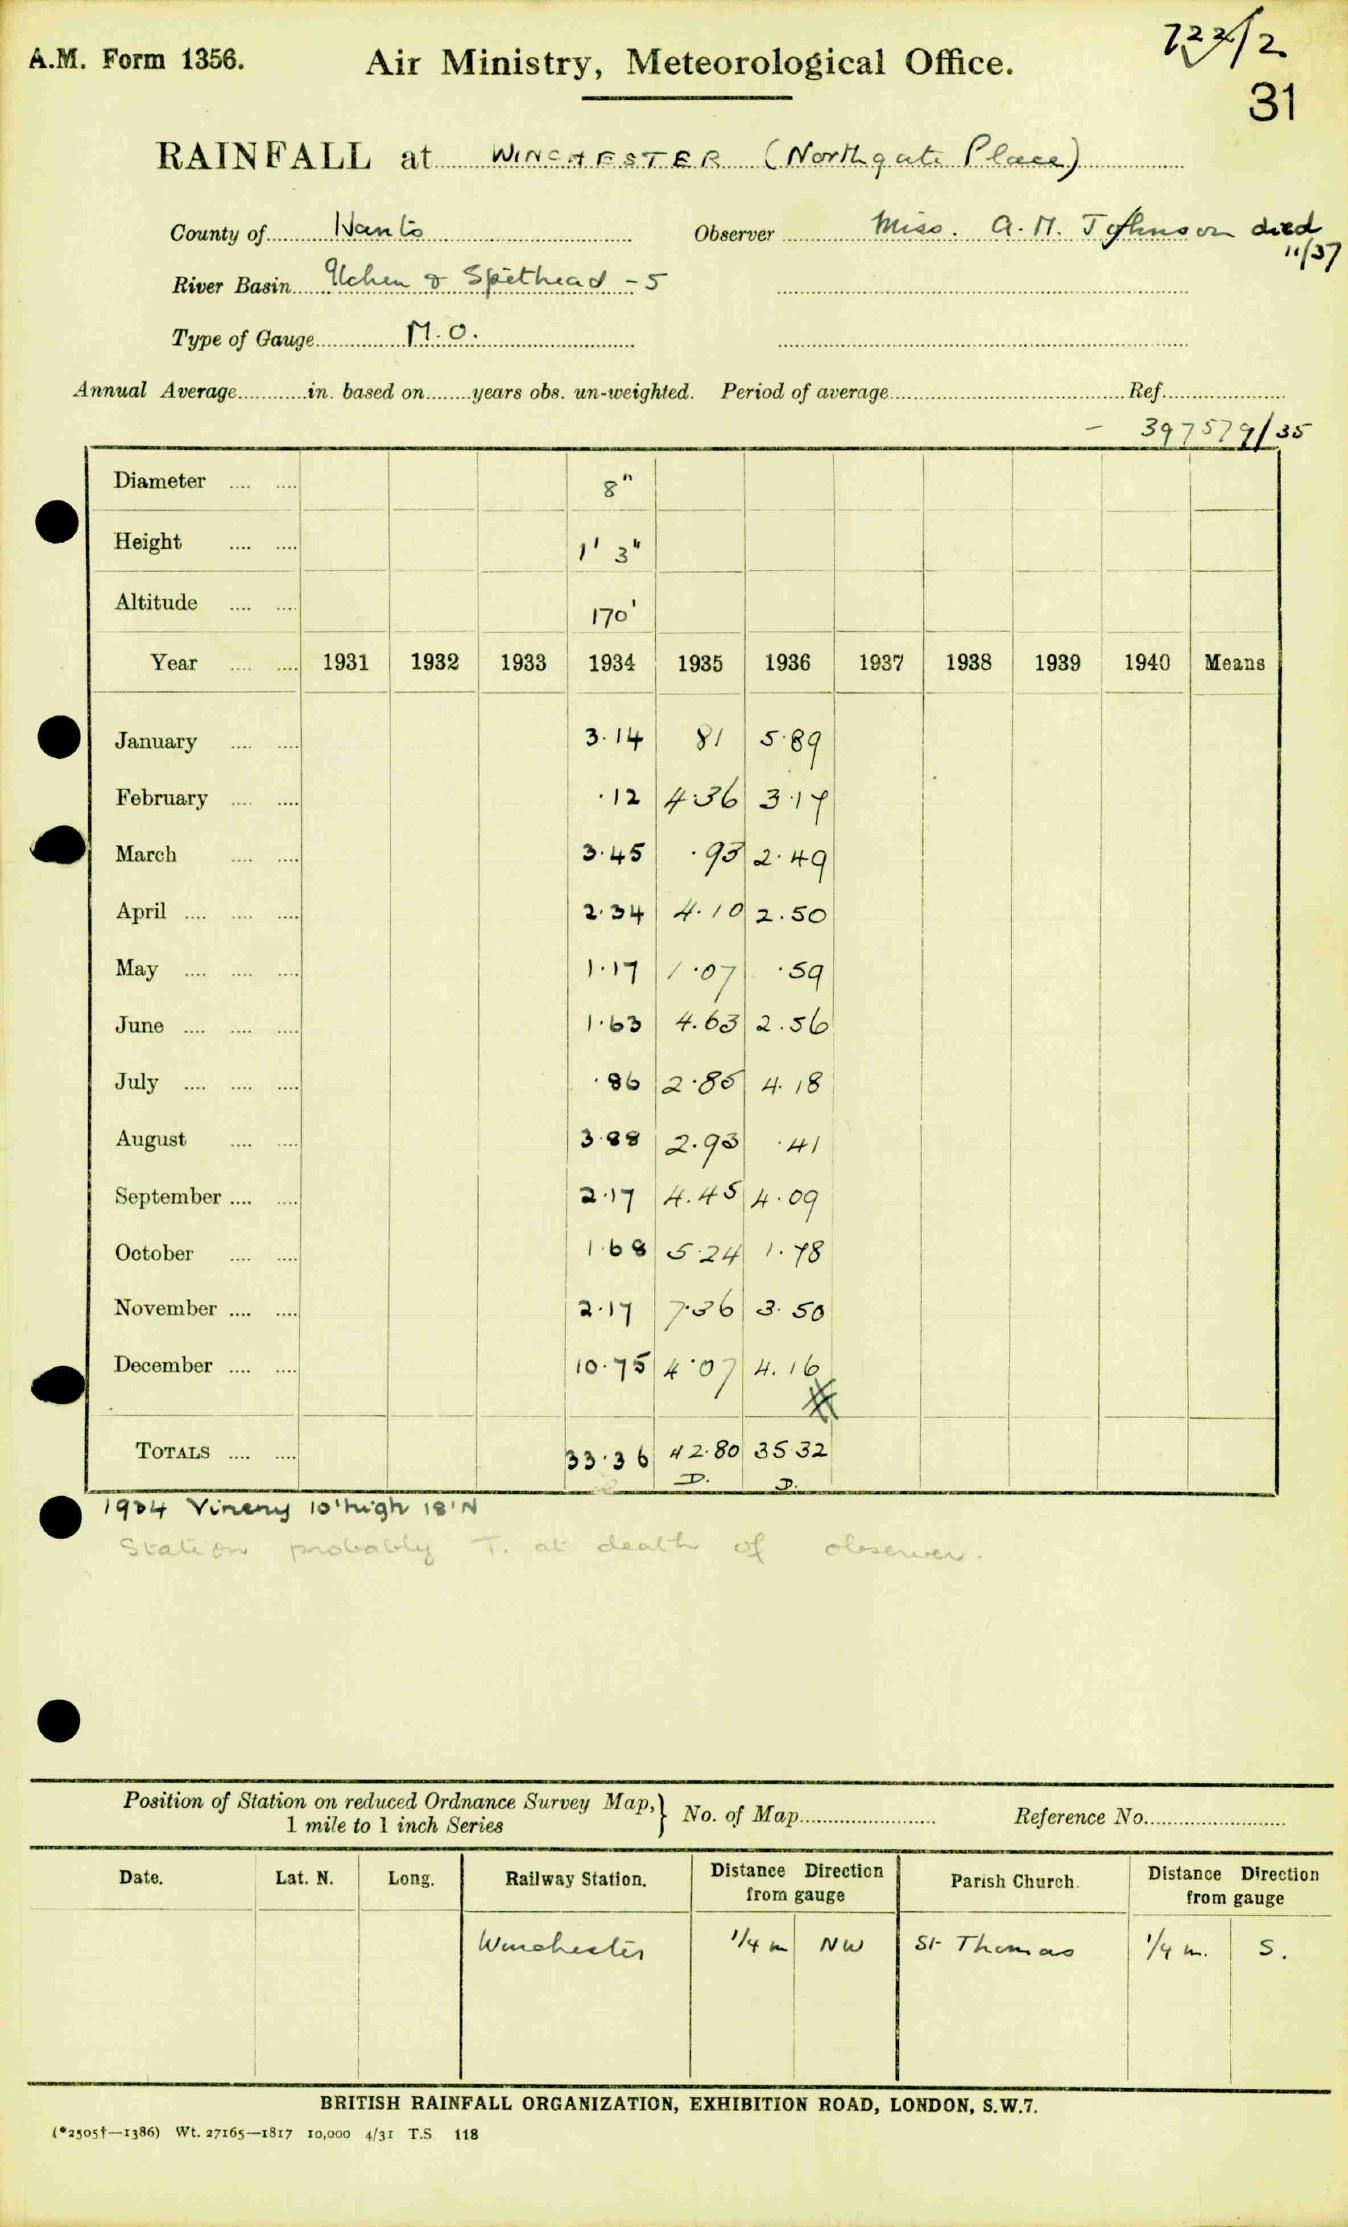 722/2
A.M. Form 1356. Air Ministry, Meteorological Office.
31
RAINFALL at WINCHESTER (Northgate Place)
County of Hants Observer Miss. A. M. Johnson died 11/37
River Basin Itchen & Spithead - 5
Type of Gauge M.O.
Annual Average in. based on years obs. un-weighted. Period of average Ref.
- 397579/35
Diameter 8"
Height 1' 3"
Altitude 170'
Year 1931 1932 1933 1934 1935 1936 1937 1938 1939 1940 Means
January 3.14 81 5.89
February .12 4.36 3.17
March 3.45 .93 2.49
April 2.34 4.10 2.50
May 1.17 1.07 .59
June 1.63 4.63 2.56
July .86 2.85 4.18
August 3.88 2.93 .41
September 2.17 4.45 4.09
October 1.68 5.24 1.78
November 2.17 7.36 3.50
December 10.75 4.07 4.16
TOTALS 33.36 42.80 35.32
D. D.
1934 Vinery 10' high 18' N
Station probably T. at death of observer.
Position of Station on reduced Ordnance Survey Map, 1 mile to 1 inch Series } No. of Map Reference No.
Date. Lat. N. Long. Railway Station. Distance Direction from gauge Parish Church. Distance Direction from gauge
Winchester 1/4 m NW St Thomas 1/4 m. S.
BRITISH RAINFALL ORGANIZATION, EXHIBITION ROAD, LONDON, S.W.7.
(*2505†—1386) Wt. 27165—1817 10,000 4/31 T.S. 118